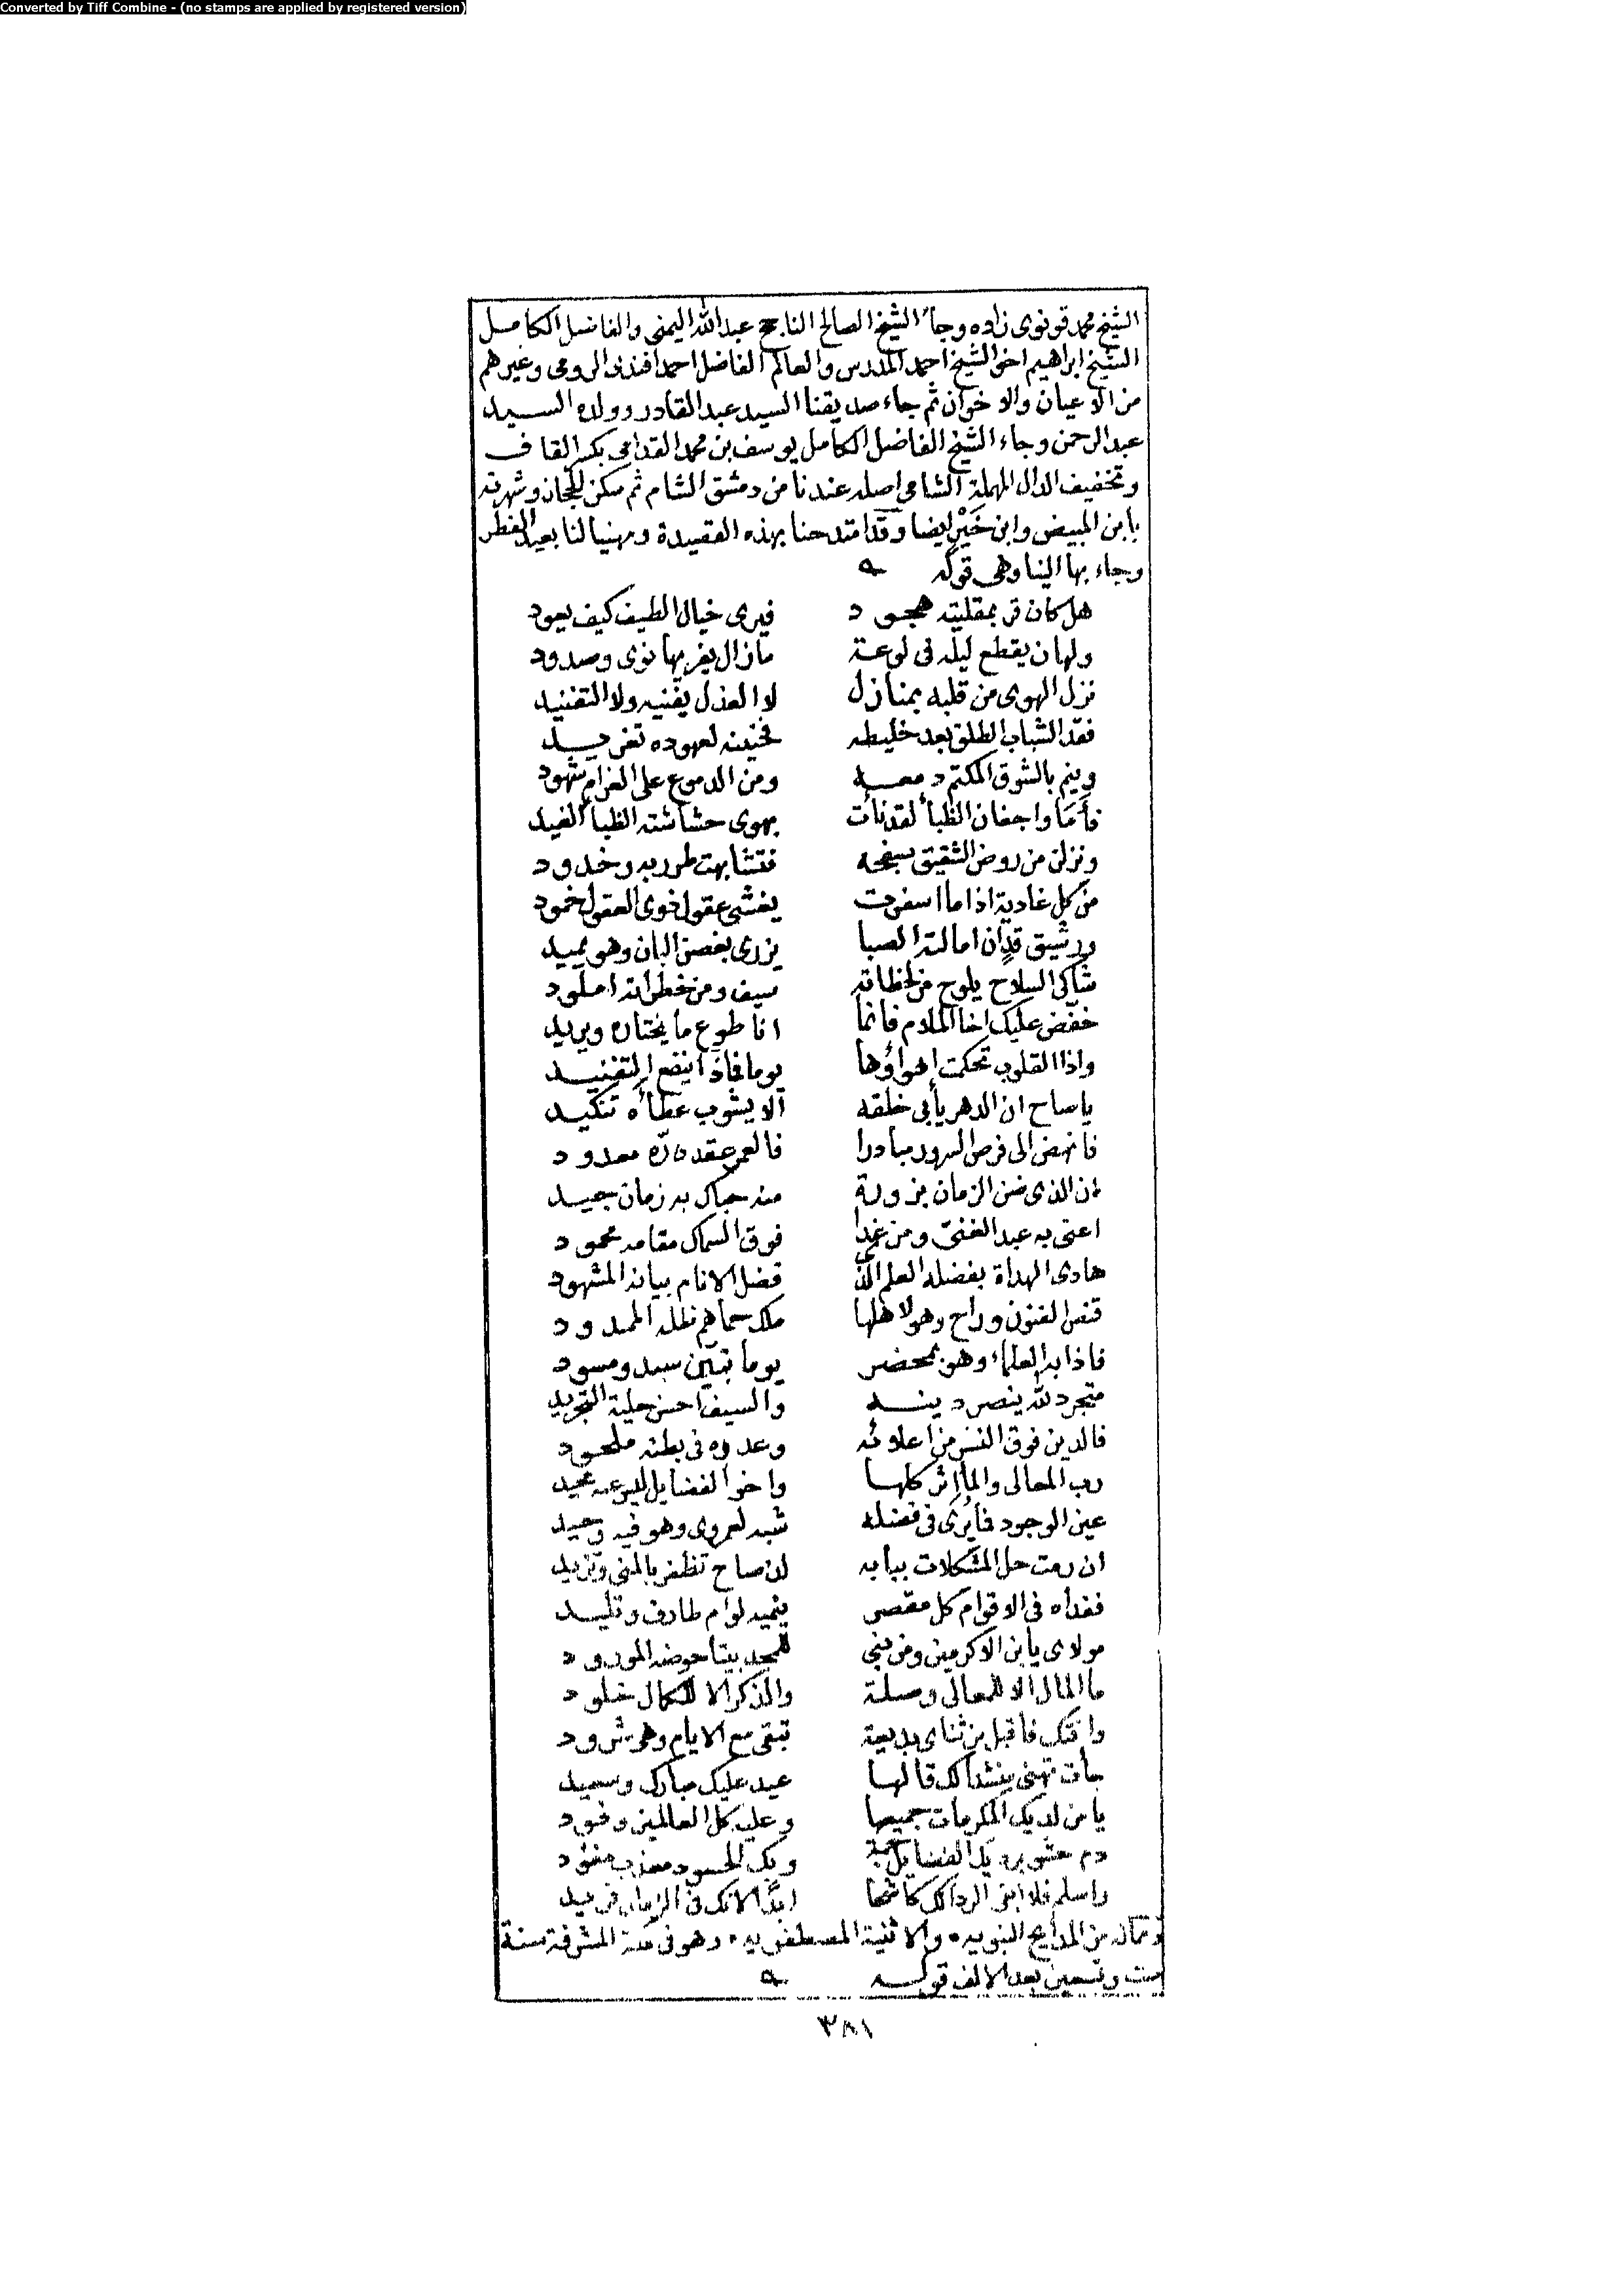 Converted by Tiff Combine - (no stamps are applied by registered version)
الشيخ محمد قونوى زاده وجاء الشيخ الصالح الناجح عبدالله اليمنى والفاضل الكامل
الشيخ ابراهيم اخى الشيخ احمد المدرس والعالم الفاضل احمد افندى الرومى وغيرهم
من الاعيان والاخوان ثم جاء صديقنا السيد عبدالقادر وولده السيد
عبدالرحمن وجاء الشيخ الفاضل الكامل يوسف بن محمد القدامى بكسر القاف
وتخفيف الدال المهملة الشامى اصله عندنا من دمشق الشام ثم سكن وشهرته
بابن المبيض وابن خير ايضا وقد امتدحنا بهذه القصيدة ومهنيا لنا بعيد الفطر
وجاء بها الينا وهى قوله
هل كان قر بمقلتيه هجود فيرى خيال الطيف كيف يعود
ولهان يقطع ليله فى لوعة مازال يغريها نوى وصدود
نزل الهوى من قلبه بمنازل لا العذل يفنيه ولا التفنيد
فقد الشباب الطلق بعد خليطه فحنينه لعهوده تغريد
وينم بالشوق المكتم دمعه ومن الدموع على الغرام شهود
اما واجفان الظبأ لقد نأت بهوى حشاشته الظبأ الغيد
ونزلن من روض الشقيق بسفحه فتشابهت طرر به وخدود
من كل غادية اذا ما اسفرت يغشى عقول ذوى العقول خمود
ورشيق قد ان امالته الصبا يزرى بغصن البان وهو يميد
شاكى السلاح يلوح من لحظاته سيف ومن خطراته املود
خفض عليك اخا الملام فانما انا طوع ما يختاره ويريد
واذا القلوب تحكمت اهواؤها يوما فماذا ينفع التفنيد
ياصاح ان الدهر يأبى خلقه الا يشوب عطاءه تنكيد
فانهض الى فرص السرور مبادرا فالعمر عقد دره معدود
ان الذى ضن الزمان بزورة منه حباك به زمان جيد
اعنى به عبدالغنى ومن غدا فوق السماك مقامه محمود
هادى الهداة بفضله العلم الذى فضل الانام بيانه المشهود
قنص الفنون وراح وهو لاهلها ملك حماهم ظله الممدود
فاذا بدا العلماء وهو بمحضر يوما تبين سيد ومسود
متجرد لله ينصر دينه والسيف احسن حلية التجريد
فالدين فوق النسر من اعلائه وعدوه فى بطنه ملحود
رب المعالى والمأثر كلها واخو الفضايل عيد
عين الوجود فما يرى فى فضله شبه لعمروى وهو فيه وحيد
ان رمت حل المشكلات ببابه لذ صاح تظفر بالمنى وتزيد
ففداه فى الاقوام كل مقصر ينميه لؤم طارف وتليد
مولاى يا بن الاكرمين ومن بنى للمجد بيتا حوضه المورود
ما المال الا للمعالى وصلة والذكر الا للكمال خلود
وافتك فاقبل من ثناى بديعة تبقى مع الايام وهى شرود
جأت تهنى بنشدا لك قالها عيد عليك مبارك وسعيد
يا من لديك المكرمات جميعها وعليه كل العالمين وفود
دم حشو برديك الفضايل جمة وبك الحسود معذب مفؤد
واسلم فلا ابقى الردا لك كاشحا ابدا لانك فى الزمان فريد
قاله من المدايح النبويه والاثنية المصطفويه وهو فى مكة المشرفة سنة
ست وتسعين بعد الالف قوله
٣٨١